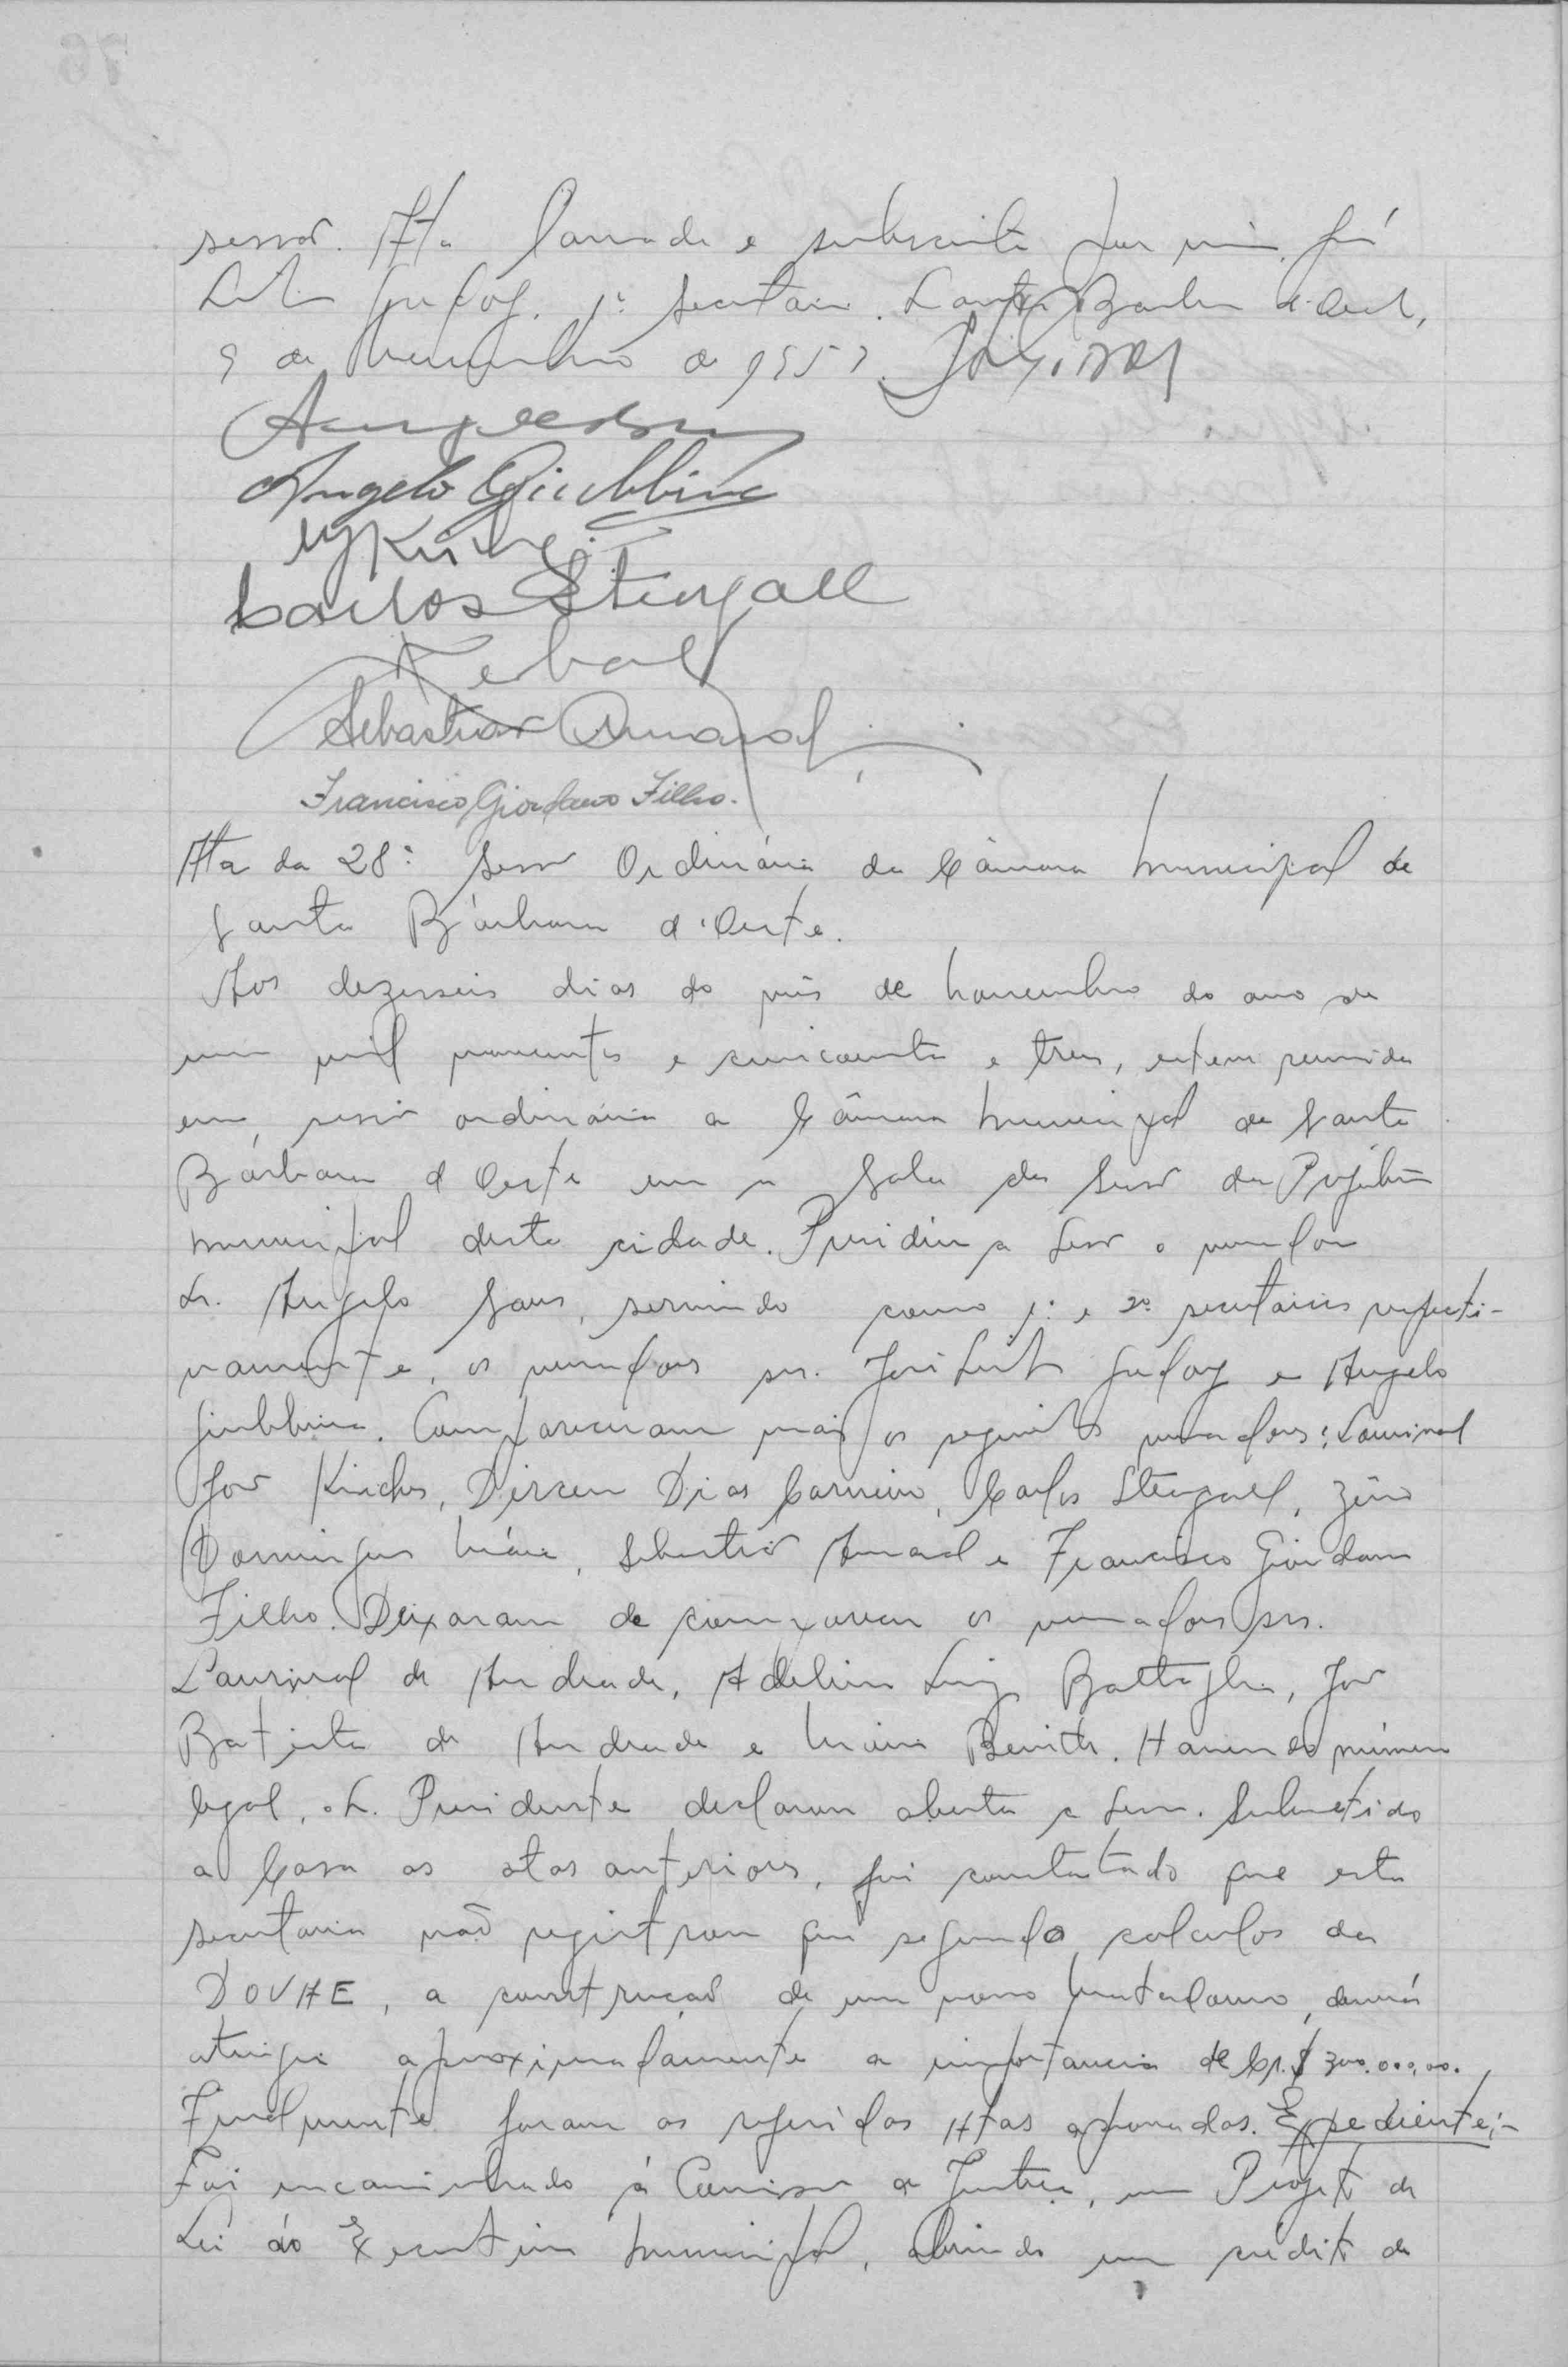 sessão. Ata lavrada e subscrita por mim, José
Leite Godoy, 1º Secretário. Santa Barbara d'Oeste,
9 de Novembro de 1953.
Angelo Giubbina
Carlos Steagall
Sebastião Amaral
Francisco Giordano Filho.
Ata da 28ª Sessão Ordinária da Câmara Municipal de
Santa Bárbara d'Oeste.
Aos dezesseis dias do mês de Novembro do ano de
um mil novecentos e cincoenta e tres, esteve reunida
em sessão ordinária a Câmara Municipal de Santa
Bárbara d'Oeste em a Sala das Sessões da Prefeitura
Municipal desta cidade. Presidiu a Sessão o vereador
Sr. Angelo Sans, servindo como 1º e 2º secretários respecti-
vamente, os vereadores srs. José Leite Godoy e Angelo
Giubbina. Compareceram mais os seguintes vereadores: Lourival
 Dirceu Dias Carneiro, Carlos Steagall, Zêno
Domingues Maia, Sebastião Amaral e Francisco Giordano
Filho. Deixaram de comparecer os vereadores srs.
Lourival de Andrade, Adelino Luiz Battaglia, João
Batista de Andrade e Benito. Havendo número
legal, o Sr. Presidente declarou aberta a Sessão. Submetido
a Casa as atas anteriores, foi constatado que esta
secretaria não registrou que segundo calculos da
DOVAE, a construção de um novo Matadouro, deverá
atingir aproximadamente a importancia de Cr.$ 300.000,00.
Finalmente foram as referidas Atas aprovadas. Expediente:-
Foi encaminhado á Comissão de Justiça, um Projeto de
Lei do Executivo Municipal, abrindo um crédito de